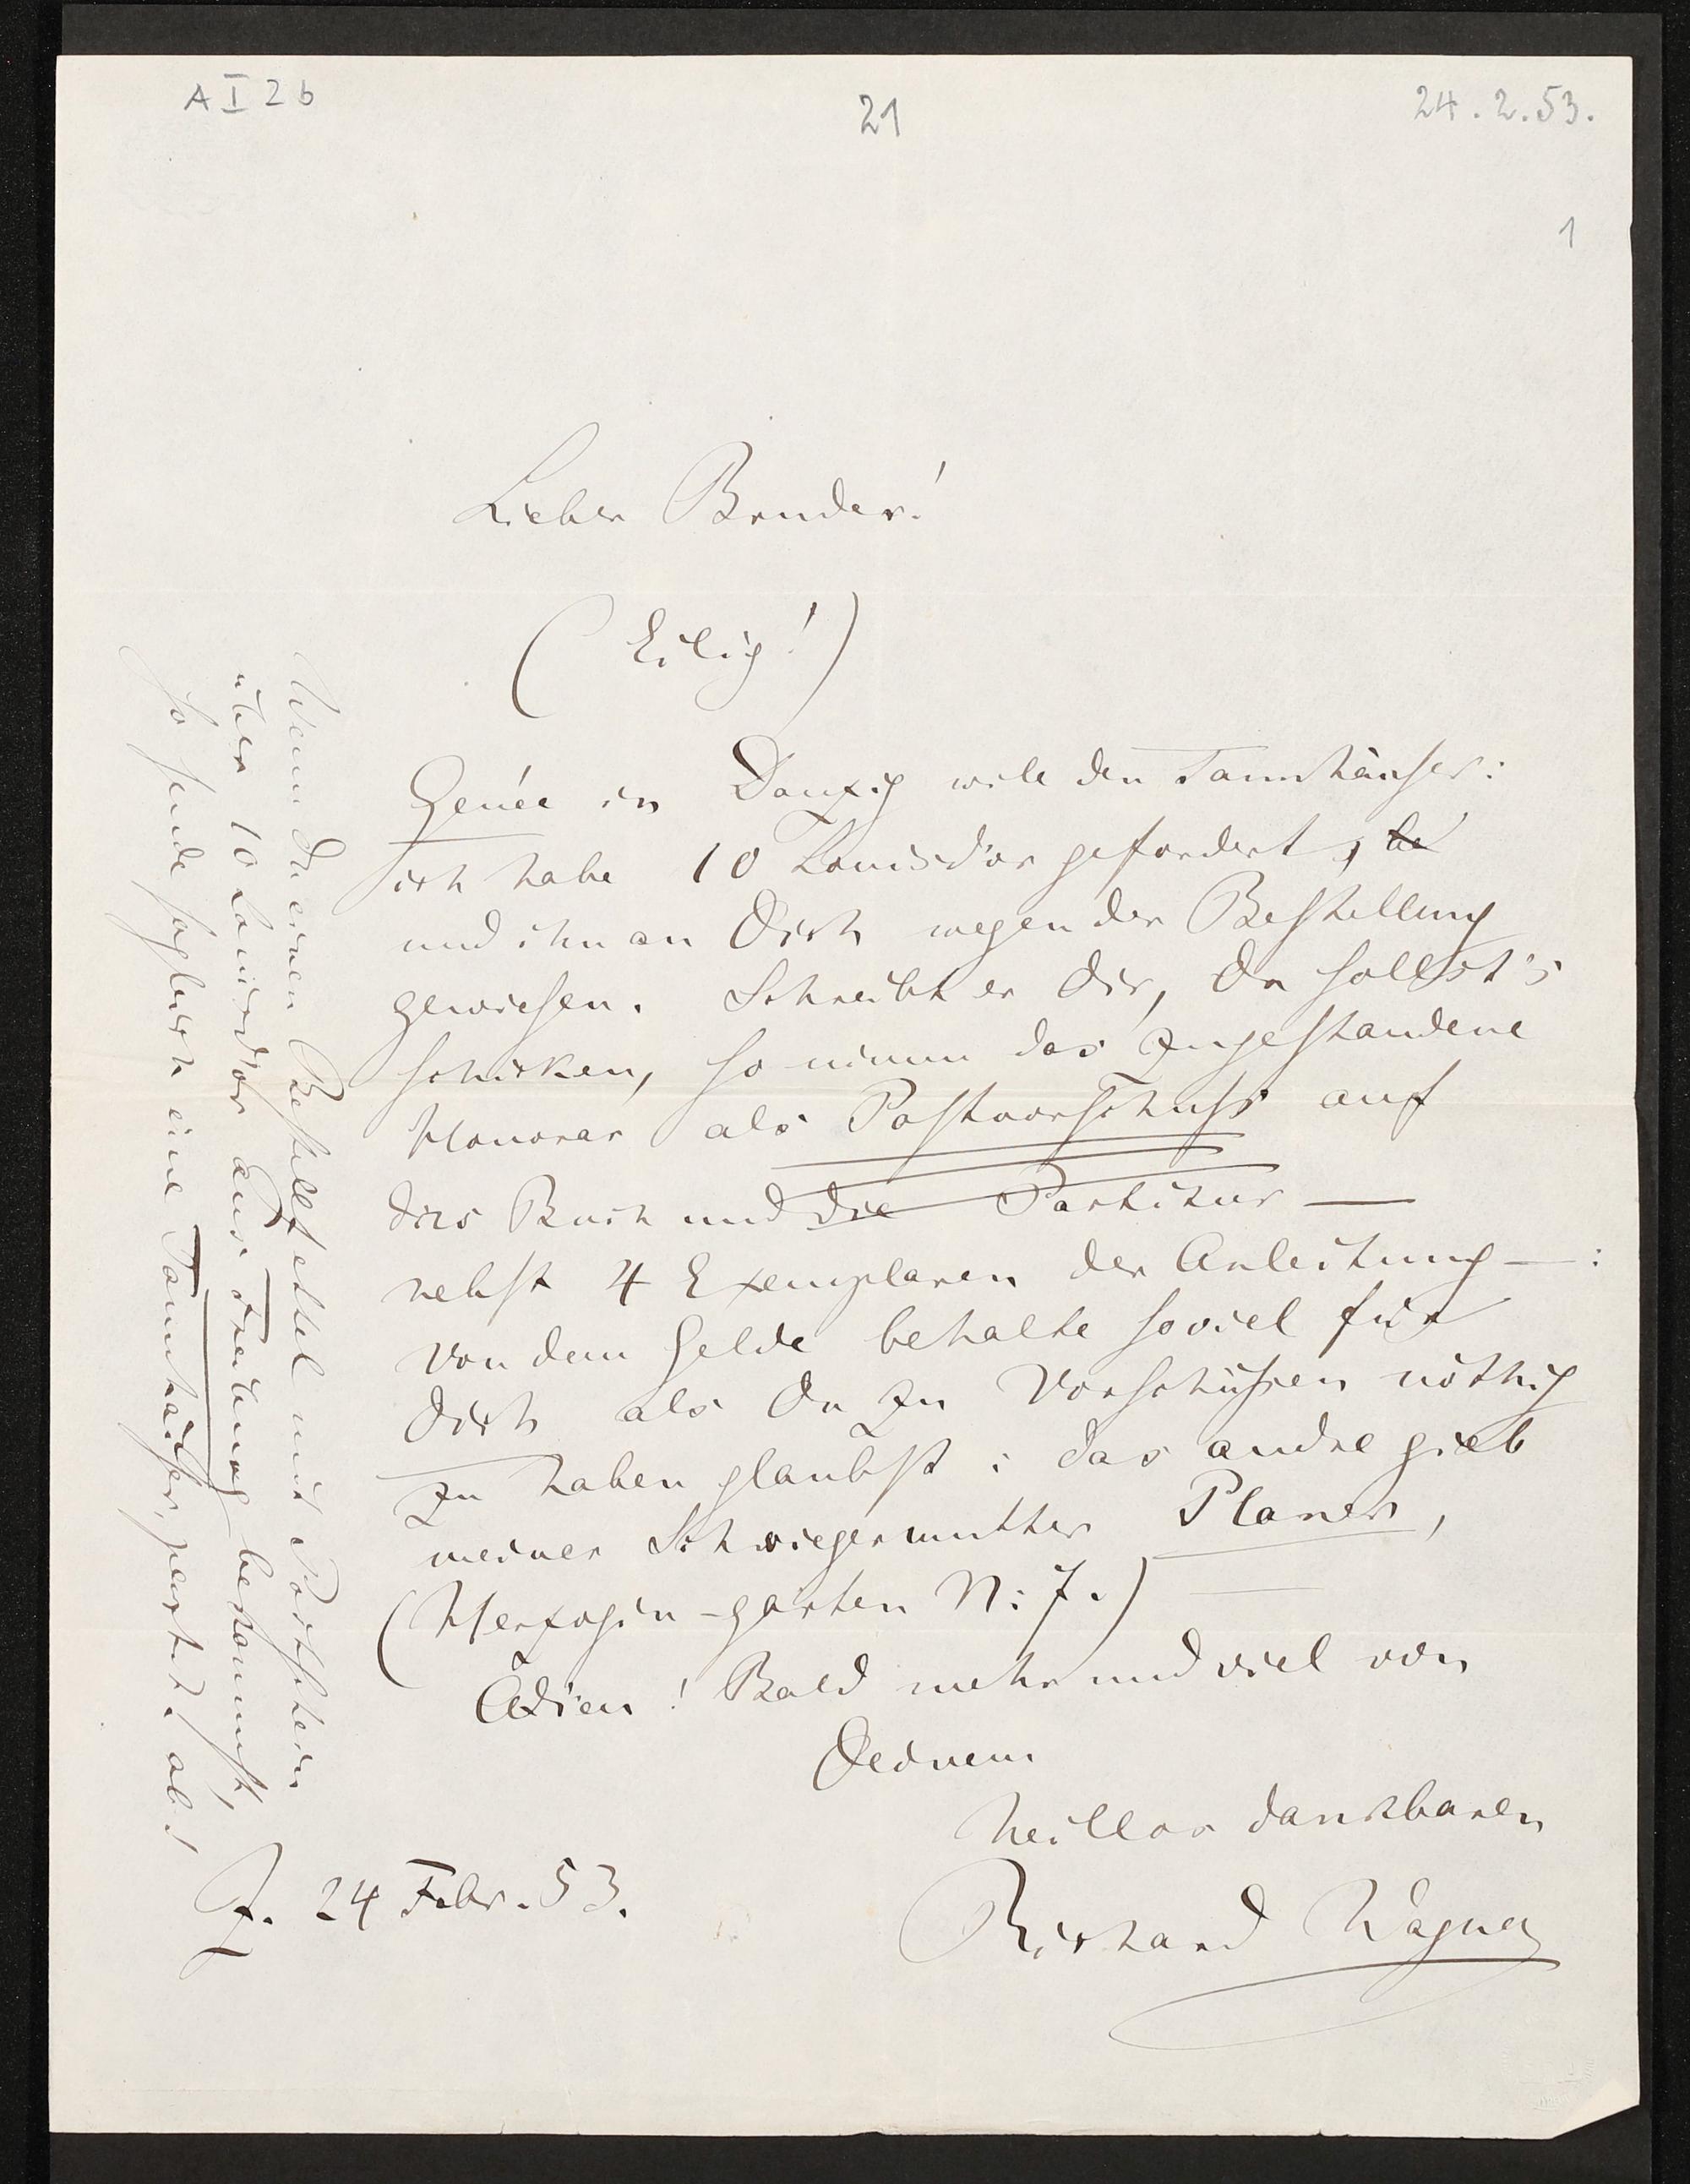 A I 2 b
21
24. 2. 53.
1
Lieber Bruder!
(Eilig!)
Genée in Danzig will den Tannhäuser:
ich habe 10 Louisd'or gefordert,
und ihn an Dich wegen der Bestellung
gewiesen. Schreibt er Dir, Du sollst's
schicken, so nimm das zugestandene
Honorar als Postvorschuss auf
das Buch und die Partitur —
nebst 4 Exemplaren der Anleitung —:
von dem Gelde behalte soviel für
Dich als Du zu Vorschüssen nöthig
zu haben glaubst: das andre gieb
meiner Schwiegermutter Planer,
(Herzogin-garten N: 7.)
Adieu! Bald mehr und viel von
Deinem
heillos dankbaren
Richard Wagner
Z. 24 Febr. 53.
Wenn Du einen Bestellzettel mit Postschein
über 10 Louisd'or aus Freiburg bekommst,
so sende sogleich eine Tannhäuser, part. ab!